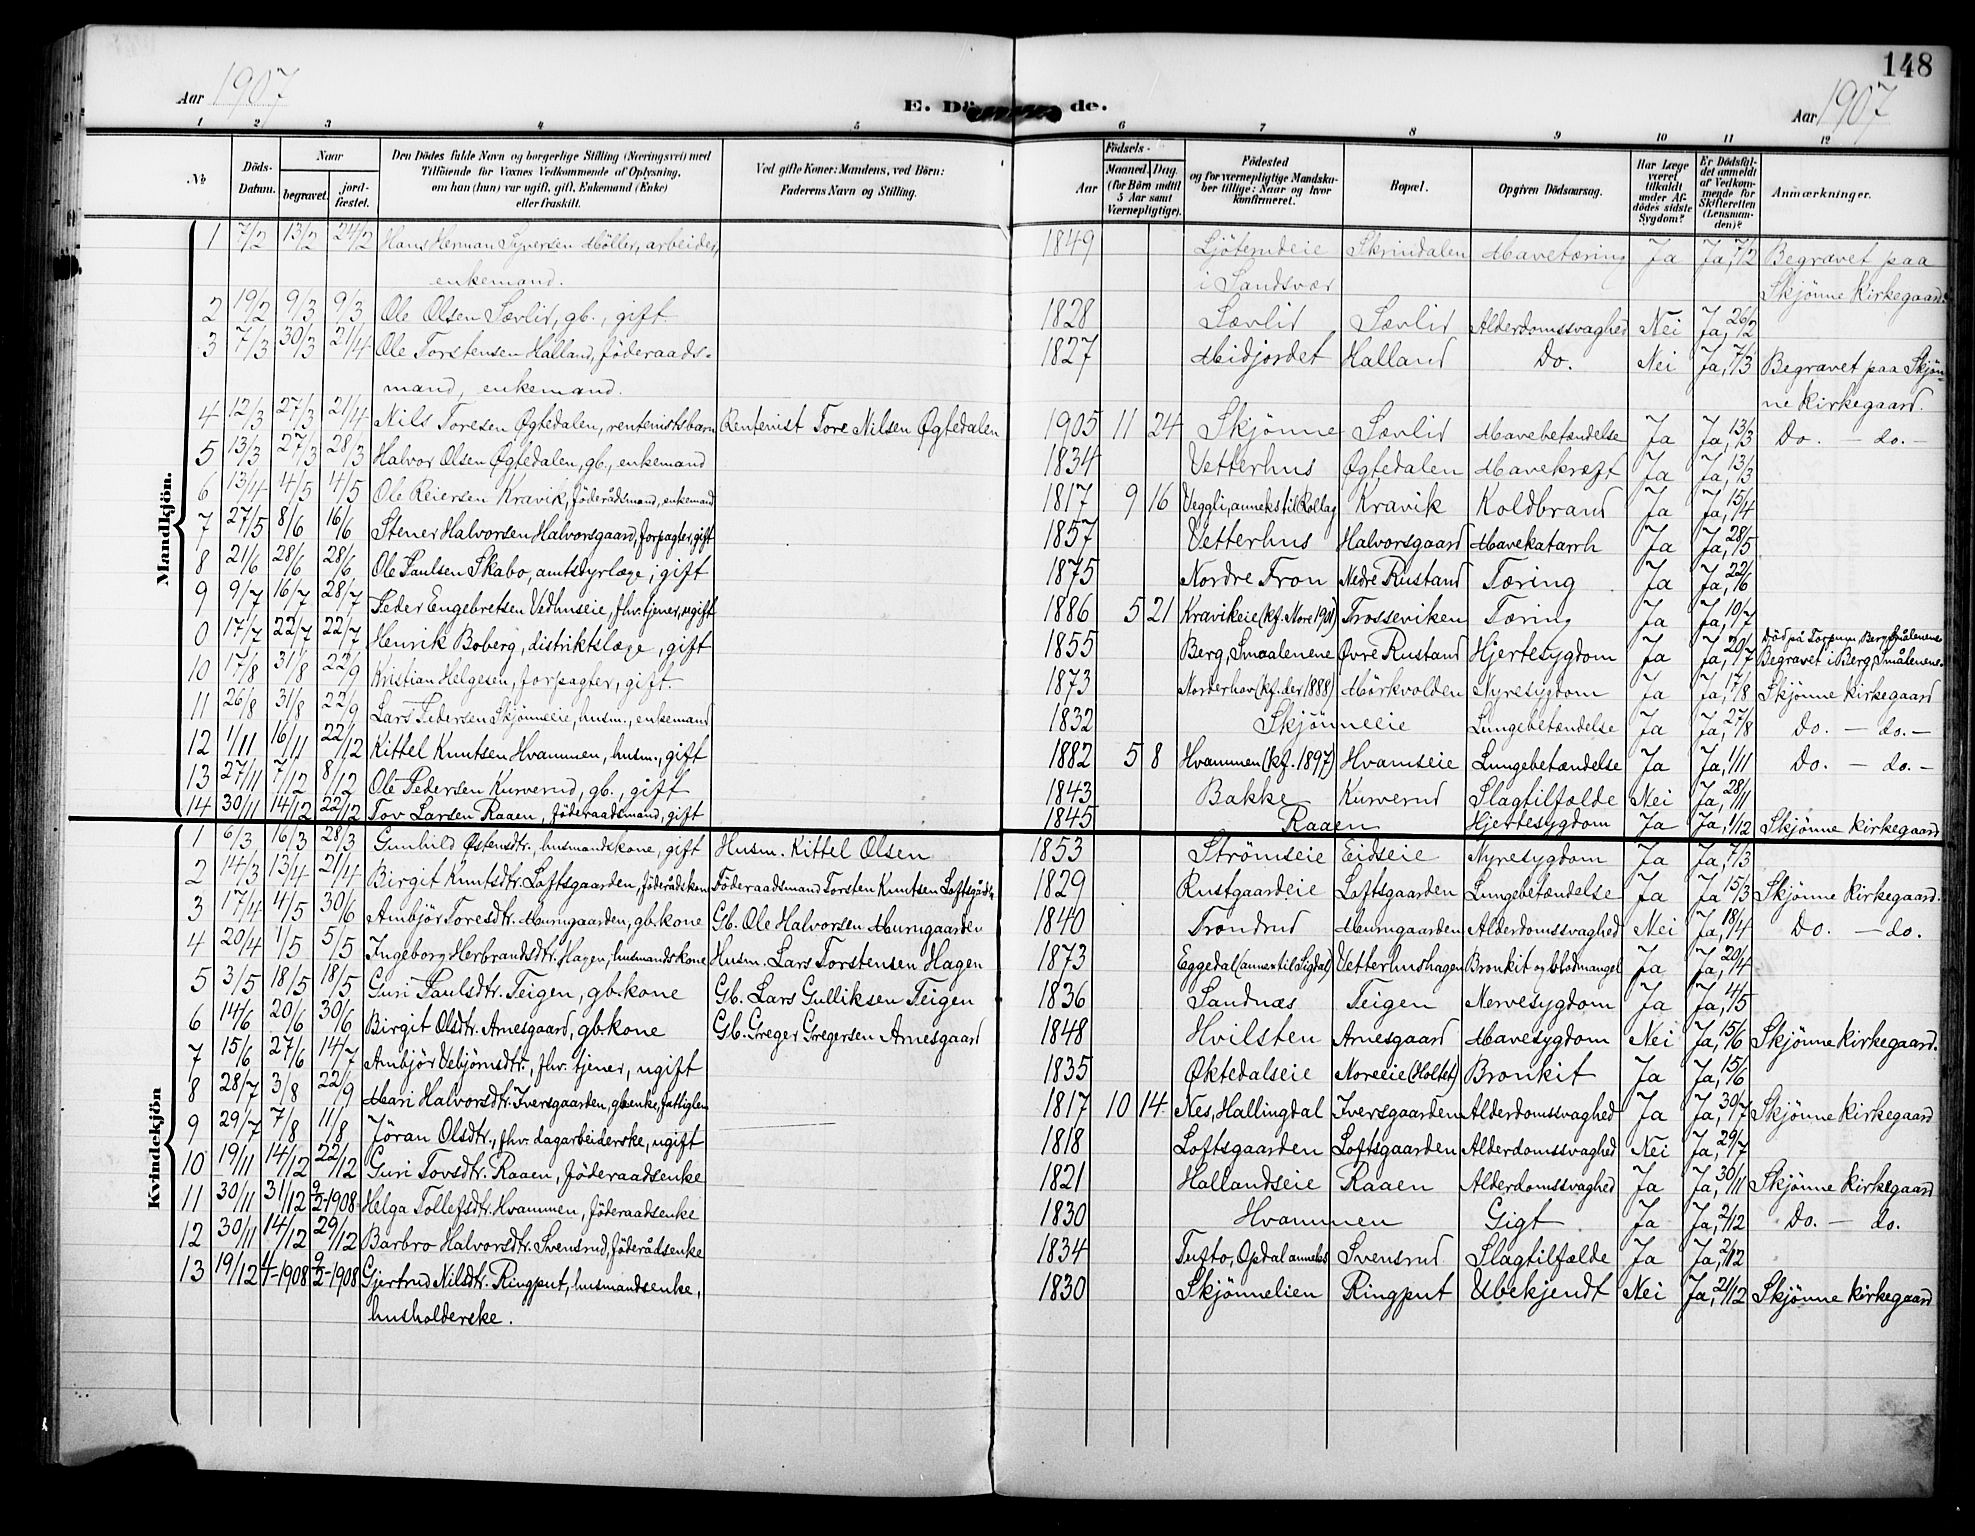 148
Aar 1907
E. Dö de.
Aar 1907
1 2 3 4 5 6 7 8 9 10 11 12
№
Döds-Datum.
Naar
begravet.
jord-fæstet.
Den Dödes fulde Navn og borgerlige Stilling (Næringsvei) med
Tilföiende for Voxnes Vedkommende af Oplysning,
om han (hun) var ugift, gift, Enkemand (Enke)
eller fraskilt.
Ved gifte Koner: Mandens, ved Börn:
Faderens Navn og Stilling.
Födsels-
Aar
Maaned. Dag.
(for Börn indtil
5 Aar samt
Værnepligtige).
Födested
og for værnepligtige Mandska-
ber tillige: Naar og hvor
konfirmeret.
Bopæl.
Opgiven Dödsaarsag.
Har Læge
været
tilkaldt
under Af-
dödes sidste
Sygdom?
Er Dödsfal-
det anmeldt
af Vedkom-
mende for
Skifteretten
(Lensman-
den)?
Anmærkninger.
Mandkjön.
1 7/2 13/2 24/2 Hans Herman Syversen Möller, arbeider, 1849 Ljötemdeie Skrindalen Mavetæring Ja Ja, 7/2 Begravet paa
enkemand. i Sandsvær Skjønne Kirkegaard.
2 19/2 9/3 9/3 Ole Olsen Sævlid, gb., gift. 1828 Sævlid Sævlid Alderdomssvaghed Nei Ja, 26/2
3 7/3 30/3 21/4 Ole Torstensen Halland, föderaads- 1827 Midjordet Halland Do. Nei Ja, 7/3 Begravet paa Skjøn-
mand, enkemand. ne Kirkegaard.
4 12/3 27/3 21/4 Nils Toresen Øgtedalen, rentenistsbarn Rentenist Tore Nilsen Øgtedalen 1905 11 24 Skjønne Sævlid Mavebetændelse Ja Ja, 13/3 Do. – do. –
5 13/3 27/3 28/3 Halvor Olsen Øgtedalen, gb., enkemand 1834 Vetterhus Øgtedalen Mavekræft Ja Ja, 13/3
6 13/4 4/5 4/5 Ole Reiersen Kravik, föderådsmand, enkemand 1817 9 16 Veggli, anneks til Rollag Kravik Koldbrand Ja Ja, 15/4
7 27/5 8/6 16/6 Stener Halvorsen Halvorsgaard, forpagter, gift 1857 Vetterhus Halvorsgaard Mavekatarrh Ja Ja, 28/5
8 21/6 28/6 28/6 Ole Paulsen Skabo, amtsdyrlæge, gift 1875 Nordre Fron Nedre Rustand Tæring Ja Ja, 22/6
9 9/7 16/7 28/7 Peder Engebretsen Vedhuseie, fhv. tjener, ugift 1886 5 21 Kravikeie (kf. Nore 1901) Trosseviken Tæring Ja Ja, 10/7
0 17/7 22/7 22/7 Henrik Boberg, distriktslæge, gift 1855 Berg, Smaalenene Øvre Rustand Hjertesygdom Ja Ja, 20/7 Död på Torpum, Berg, Smålenene. Begravet i Berg, Smålenene.
10 17/8 31/8 22/9 Kristian Helgesen, forpagter, gift. 1873 Norderhov (kf. der 1888) Mörkvolden Nyresygdom Ja Ja, 17/8 Skjønne Kirkegaard
11 26/8 31/8 22/9 Lars Pedersen Skjønneeie, husm., enkemand 1832 Skjønneeie Lungebetændelse Ja Ja, 27/8 Do. – do. –
12 1/11 16/11 22/12 Kittel Knutsen Hvammen, husm., gift 1882 5 8 Hvammen (kf. 1897) Hvamseie Lungebetændelse Ja Ja, 1/11 Do. – do. –
13 27/11 7/12 8/12 Ole Pedersen Kurverud, gb., gift 1843 Bakke Kurverud Slagtilfælde Nei Ja, 28/11
14 30/11 14/12 22/12 Tov Larsen Raaen, föderaadsmand, gift 1845 Raaen Hjertesygdom Ja Ja, 1/12 Skjønne Kirkegaard
Kvindekjön
1 6/3 16/3 28/3 Gunhild Østensdtr., husmandskone, gift Husm. Kittel Olsen 1853 Strömseie Eidseie Nyresygdom Ja Ja, 7/3
2 14/3 13/4 21/4 Birgit Knutsdtr. Loftsgaarden, föderådskone Föderaadsmand Torsten Knutsen Loftsgård. 1829 Rustgaardeie Loftsgaarden Lungebetændelse Ja Ja 15/3 Skjønne Kirkegaard.
3 17/4 4/5 30/6 Ambjör Toresdtr. Murngaarden, gb.kone Gb. Ole Halvorsen Murngaarden 1840 Trondrud Murngaarden Alderdomssvaghed Nei Ja, 18/4 Do. – do.
4 20/4 1/5 5/5 Ingeborg Herbrandsdtr. Hagen, husmandskone Husm. Lars Torstensen Hagen 1873 Eggedal (annex til Sigdal) Vetterhushagen Bronkit og blodmangel Ja Ja, 20/4
5 3/5 18/5 18/5 Guri Paulsdtr. Teigen, gb.kone Gb. Lars Gulliksen Teigen 1836 Sandnæs Teigen Nervesygdom Ja Ja, 4/5
6 14/6 20/6 30/6 Birgit Olsdtr. Arnesgaard, gb.kone Gb. Greger Gregersen Arnesgaard 1848 Hvilsten Arnesgaard Mavesygdom Nei Ja, 15/6 Skjønne Kirkegaard.
7 15/6 27/6 14/7 Ambjör Vebjörnsdtr., fhv. tjener, ugift 1835 Øktedalseie Noreeie (Holtet) Bronkit Ja Ja, 15/6
8 28/7 3/8 22/9 Mari Halvorsdtr. Iversgaarden, gb.enke, fattiglem 1817 10 14 Nes, Hallingdal Iversgaarden Alderdomssvaghed Ja Ja, 30/7 Skjønne Kirkegaard
9 29/7 7/8 11/8 Jöran Olsdtr., fhv. dagarbeiderske, ugift 1818 Loftsgaarden Loftsgaarden Alderdomssvaghed Nei Ja, 29/7
10 19/11 14/12 22/12 Guri Tovsdtr. Raaen, föderaadsenke 1821 Hallandseie Raaen Alderdomssvaghed Ja Ja, 30/11 Skjønne Kirkegaard
11 30/11 31/12 9/2-1908 Helga Tollefsdtr. Hvammen, föderaadsenke 1830 Hvammen Gigt Ja Ja, 2/12 Do. – do.
12 30/11 14/12 29/12 Barbro Halvorsdtr. Svensrud, föderådsenke 1834 Tufto, Opdal anneks Svensrud Slagtilfælde Ja Ja, 2/12
13 19/12 4/1-1908 9/2-1908 Gjertrud Nilsdtr. Ringput, husmandsenke, 1830 Skjönnelien Ringput Ubekjendt Nei Ja, 21/12 Skjønne Kirkegaard
husholderske.